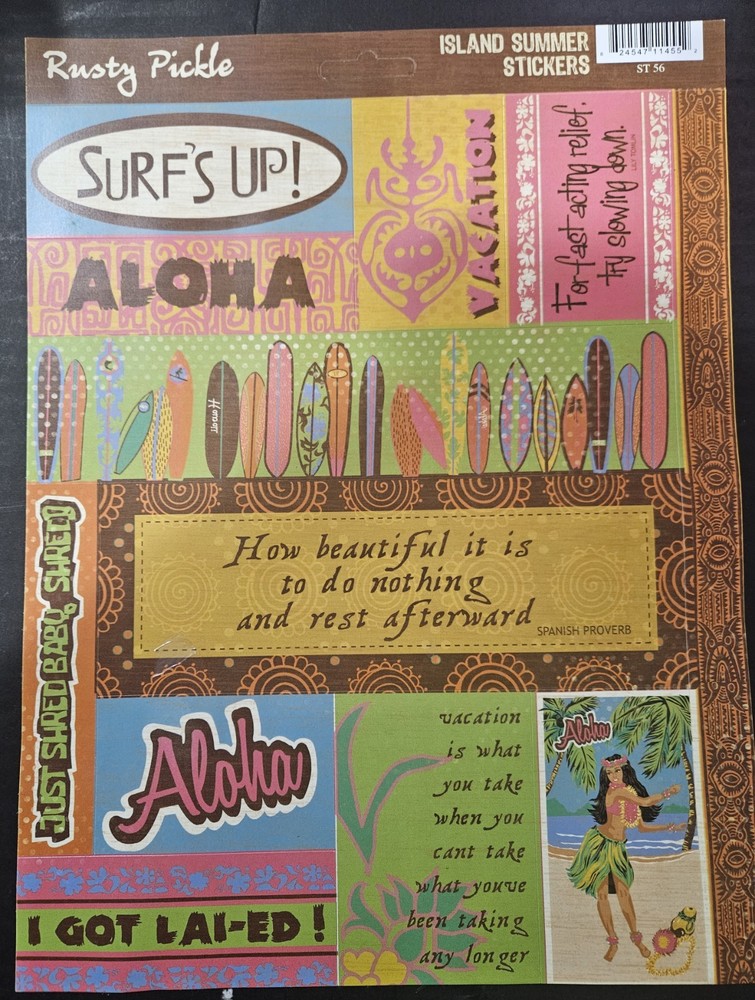 Rusty Pickle
ISLAND SUMMER
STICKERS
0 24547 11455 2
ST 56
SURF'S UP!
VACATION
For fast acting relief,
try slowing down.
LILY TOMLIN
ALOHA
Hawaii
JUST SHRED BABY, SHRED!
How beautiful it is
to do nothing
and rest afterward
SPANISH PROVERB
Aloha
vacation
is what
you take
when you
cant take
what youve
been taking
any longer
Aloha
I GOT LAI-ED!